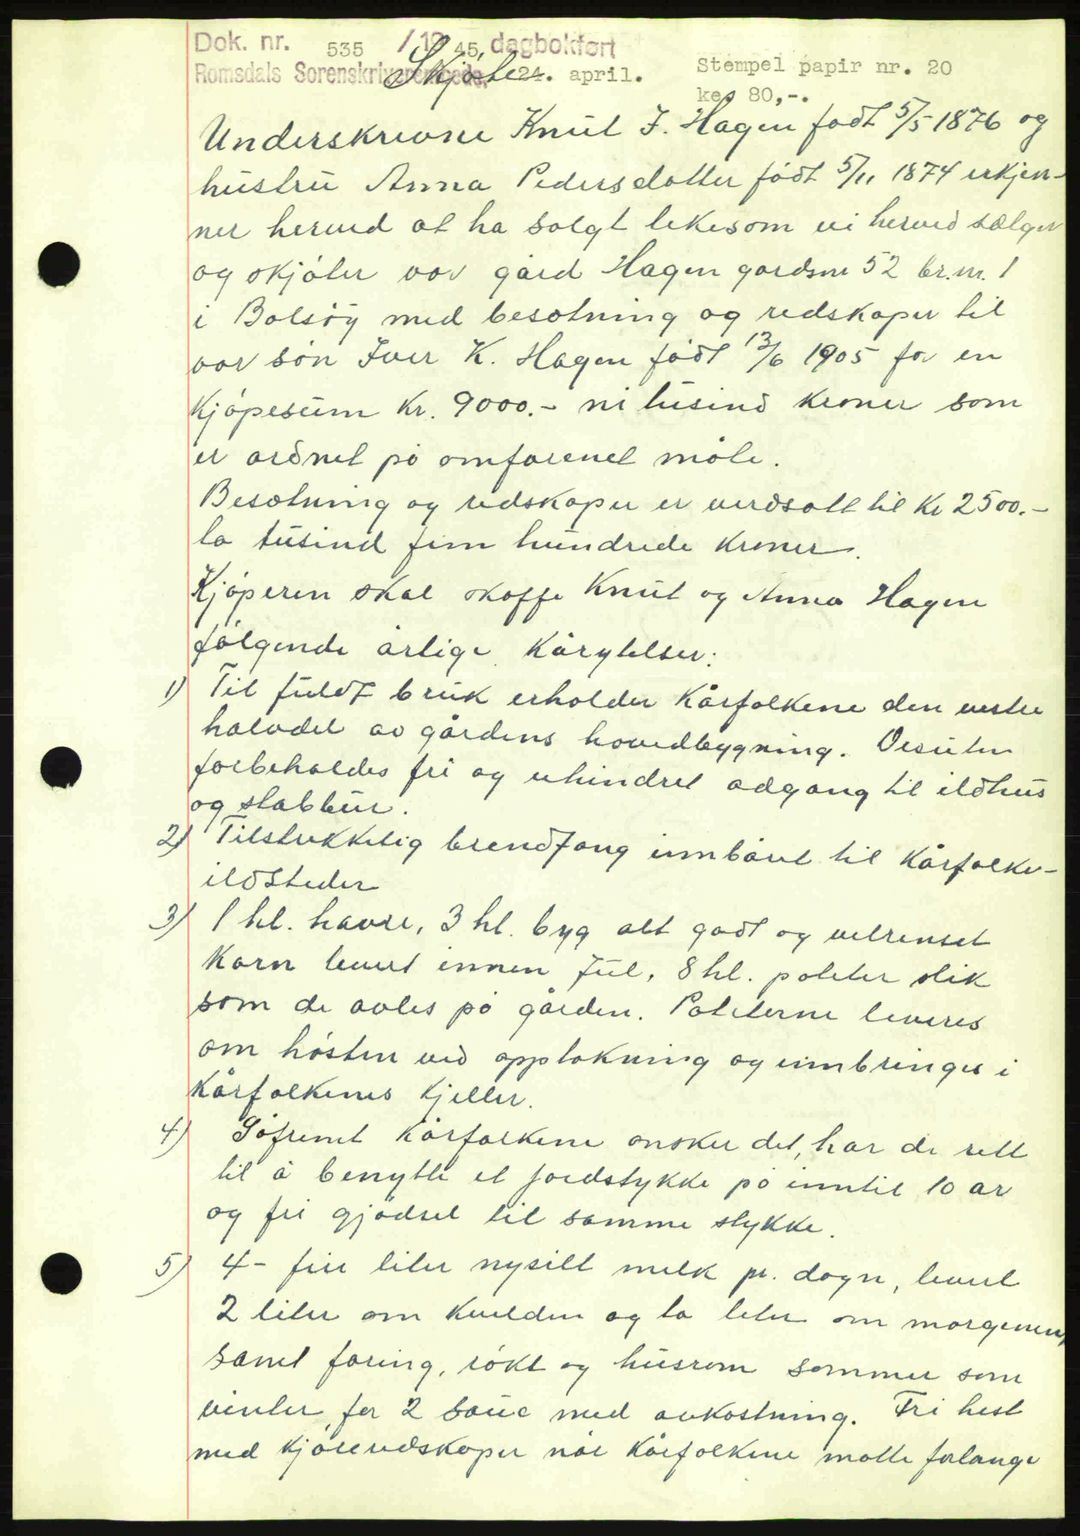 Dok. nr. 535 / 19 45, dagbokført
Romsdals Sorenskriverembede. 24. april.
Skjöte
Stempel papir nr. 20
kr 80,-.
Underskrevne Knut I. Hagen født 5/5 1876 og
hustru Anna Pedersdatter født 5/11 1874 erkjen-
ner herved at ha solgt likesom vi herved sælger
og skjöter vor gård Hagen gardsnr 52 br.nr. 1
i Bolsöy med besætning og redskaper til
vor sön Iver K. Hagen født 13/6 1905 for en
Kjöpesum Kr. 9000.- ni tusind kroner som
er ordnet på omforenet måte.
Besætning og redskaper er verdsatt til Kr 2500.-
to tusind fem hundrede kroner.
Kjöperen skal skaffe Knut og Anna Hagen
fölgende årlige Kårytelser:
1) Til fuldt bruk erholder Kårfolkene den vestre
halvdel av gårdens hovedbygning. Desuten
forbeholdes fri og uhindret adgang til ildhus
og stabbur.
2) Tilstrekkelig brendfang innbåret til Kårfolke-
ildsteder
3) 1 hl. havre, 3 hl. byg alt godt og velrenset
Korn levert innen Jul, 8 hl. poteter slik
som de avles på gården. Poteterne leveres
om hösten ved opptakning og innbringes i
Kårfolkenes Kjeller.
4) Såfremt Kårfolkene önsker det, har de rett
til å benytte et jordstykke på inntil 10 ar
og fri gjödsel til samme stykke.
5) 4- fire liter nysilt melk pr. dögn, levert
2 liter om Kvelden og to liter om morgenen,
samt foring, rökt og husrom sommer som
vinter for 2 saue med avkastning. Fri hest
med kjöreredskaper når Kårfolkene måtte forlange